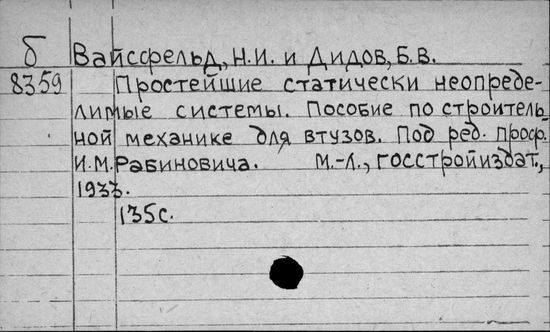 б Вайссфельд, Н.И. и Дидов, Б.В.
8359 Простейшие статически неопреде-
лимые системы. Пособие по строитель-
ной механике для втузов. Под ред. проф.
И.М. Рабиновича. М.-Л., Госстройиздат,
1933.
135с.